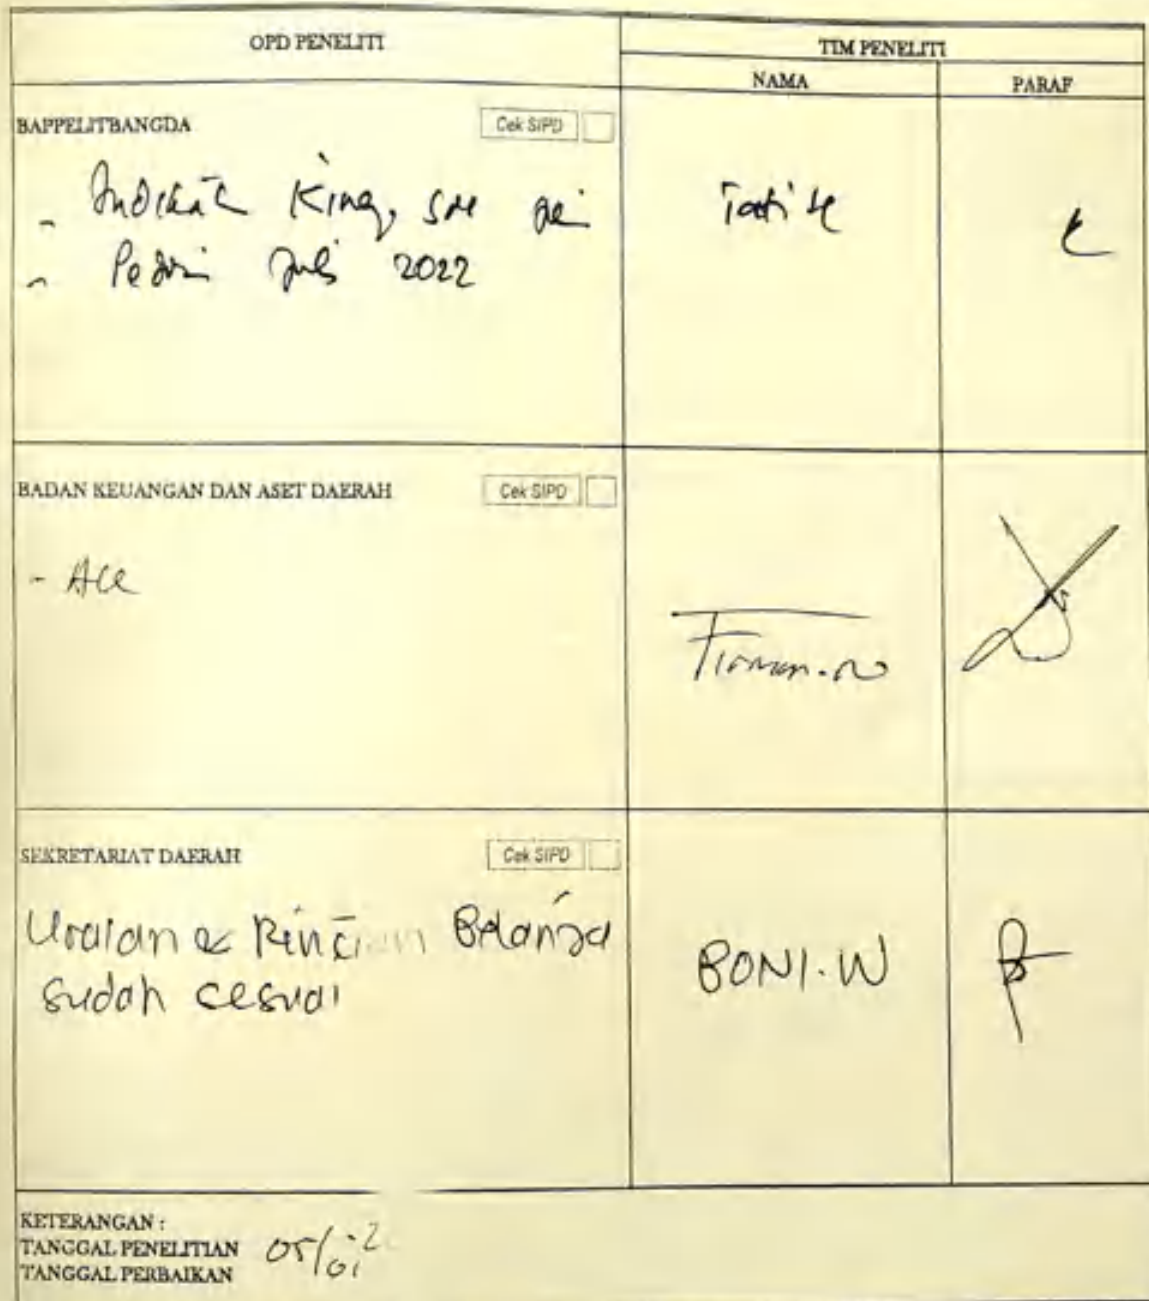 OPD PENELITI
TIM PENELITI
NAMA
PARAF
BAPPELITBANGDA
Cek SIPD
- Indikator
- Juli 2022
BADAN KEUANGAN DAN ASET DAERAH
Cek SIPD
- Acc
Firman.N
SEKRETARIAT DAERAH
Cek SIPD
Uraian & Rincian Belanja
sudah cesuai
BONI.W
KETERANGAN :
TANGGAL PENELITIAN 05/01
TANGGAL PERBAIKAN